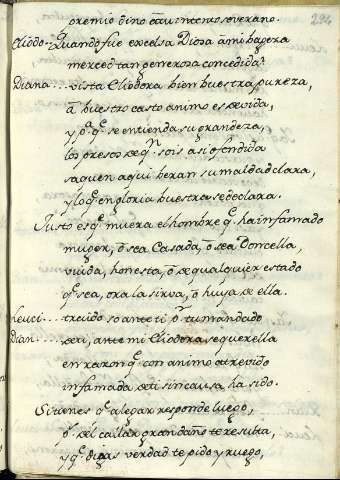 294
premio dino
Cliodo - Quando fue excelsa Diosa âmi bageza
merced tan generosa concedida?
Diana... vista Cliodora bien buestra pureza,
â buestro casto animo es devida,
y pª qͤ se entienda su grandeza,
los presos de qⁿ sois asi ofendida
saquen aqui beran su maldad clara,
y lo qͤ en gloria buestra se declara.
Justo es qͤ muera el hombre qͤ ha infamado
muger, ô sea Casada, ô sea Doncella,
viuda, honesta, ô de qualquier estado
qͤ sea, ora la sirva, ô huya de ella.
Leuci... traido so ante ti pʳ tu mandado
Dian... de ti, ante mi Cliodora se querella
en razon qͤ con animo atrevido
infamada de ti sin causa ha sido.
Si tienes qͤ alegar responde luego,
qͤ del callar gran daño te resulta,
y qͤ digas verdad te pido y ruego,